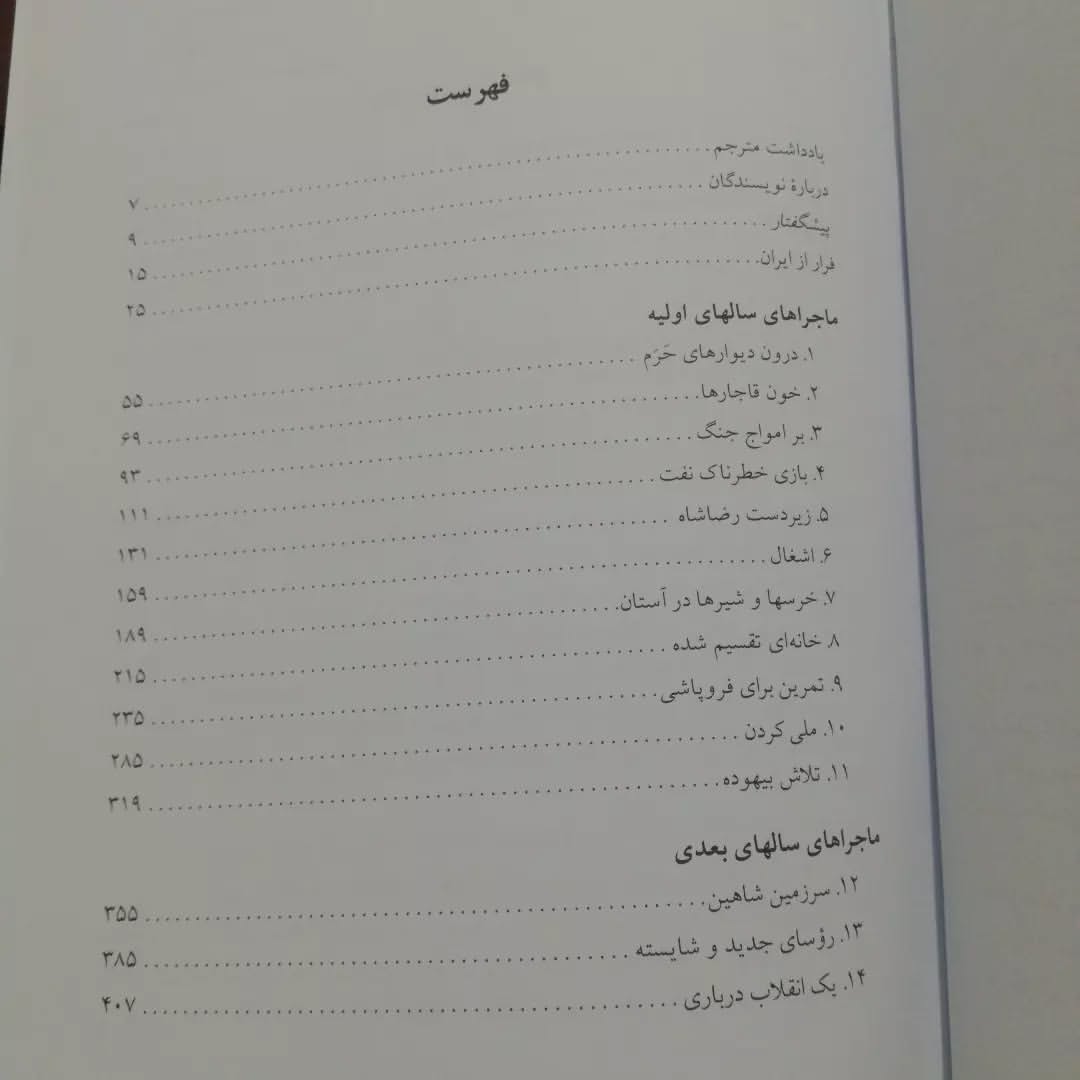 فهرست
یادداشت مترجم ........ ۷
دربارهٔ نویسندگان ........ ۹
پیشگفتار ........ ۱۵
فرار از ایران ........ ۲۵
ماجراهای سالهای اولیه
۱. درون دیوارهای حَرَم ........ ۵۵
۲. خون قاجارها ........ ۶۹
۳. بر امواج جنگ ........ ۹۳
۴. بازی خطرناک نفت ........ ۱۱۱
۵. زیردست رضاشاه ........ ۱۳۱
۶. اشغال ........ ۱۵۹
۷. خرسها و شیرها در آستان ........ ۱۸۹
۸. خانه‌ای تقسیم شده ........ ۲۱۵
۹. تمرین برای فروپاشی ........ ۲۳۵
۱۰. ملی کردن ........ ۲۸۵
۱۱. تلاش بیهوده ........ ۳۱۹
ماجراهای سالهای بعدی
۱۲. سرزمین شاهین ........ ۳۵۵
۱۳. رؤسای جدید و شایسته ........ ۳۸۵
۱۴. یک انقلاب درباری ........ ۴۰۷